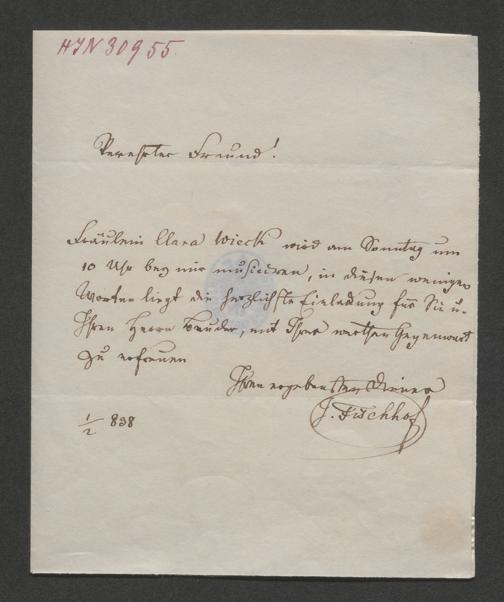 HIN 30955
Verehrter Freund!
Fräulein Clara Wieck wird am Sonntag um
10 Uhr bey mir musiciren, in diesen wenigen
Worten liegt die herzlichste Einladung für Sie u.
Ihren Herrn Bruder, mit Ihrer werthen Gegenwart
zu erfreuen
Ihren ergebensten Diener
J. Fischhof
1/2 838